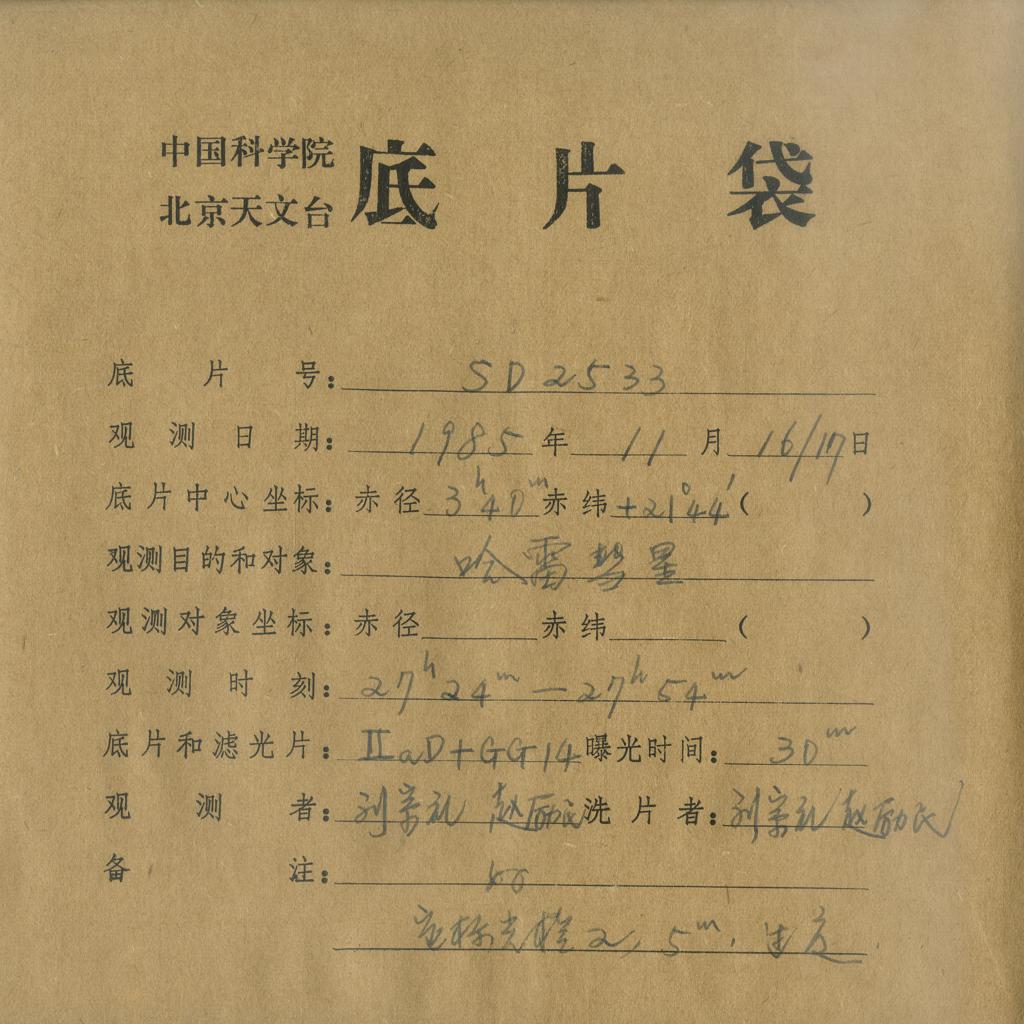 中国科学院
北京天文台
底片袋
底片号：SD2533
观测日期：1985年11月16/17日
底片中心坐标：赤径3h40m赤纬+21°44′（ ）
观测目的和对象：哈雷彗星
观测对象坐标：赤径 赤纬 （ ）
观测时刻：27h24m—27h54m
底片和滤光片：ⅡaD+GG14曝光时间：30m
观测者：刘宗礼 赵励民洗片者：刘宗礼 赵励民
备注：
定标光楔2，5m，